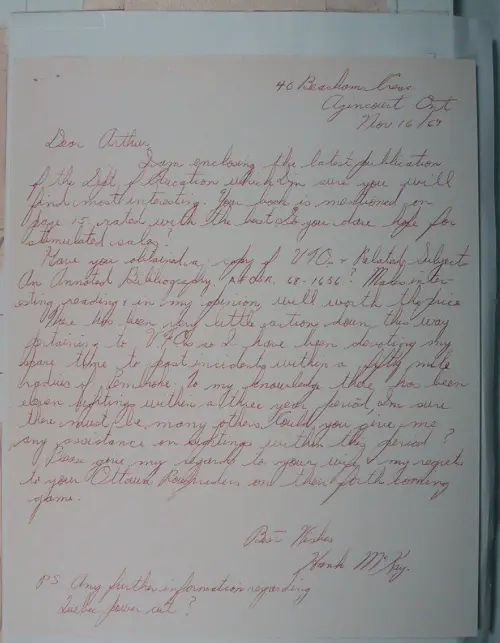 40 Beacham Cres
Agincourt Ont
Nov 16/69
Dear Arthur:
I am enclosing the latest publication
of the Dept. of Education which I'm sure you will
find most interesting. Your book is mentioned on
page 15, rated with the best. So you dare hope for
stimulated sales?
Have you obtained a copy of UFO & Related Subject
An Annotated Bibliography, AFOSR. 68-1656? Makes inter-
esting reading & in my opinion, well worth the price
There has been very little action down this way
pertaining to UFOs so I have been devoting my
spare time to past incidents within a fifty mile
radius of Pembroke. To my knowledge there has been
eleven sightings within a three year period, I'm sure
there must be many others. Could you give me
any assistance on sightings within this period?
Please give my regards to your wife & my regrets
to your Ottawa Roughriders on their forthcoming
game.
Best Wishes
Hank McKay.
PS Any further information regarding
Quebec power cut?